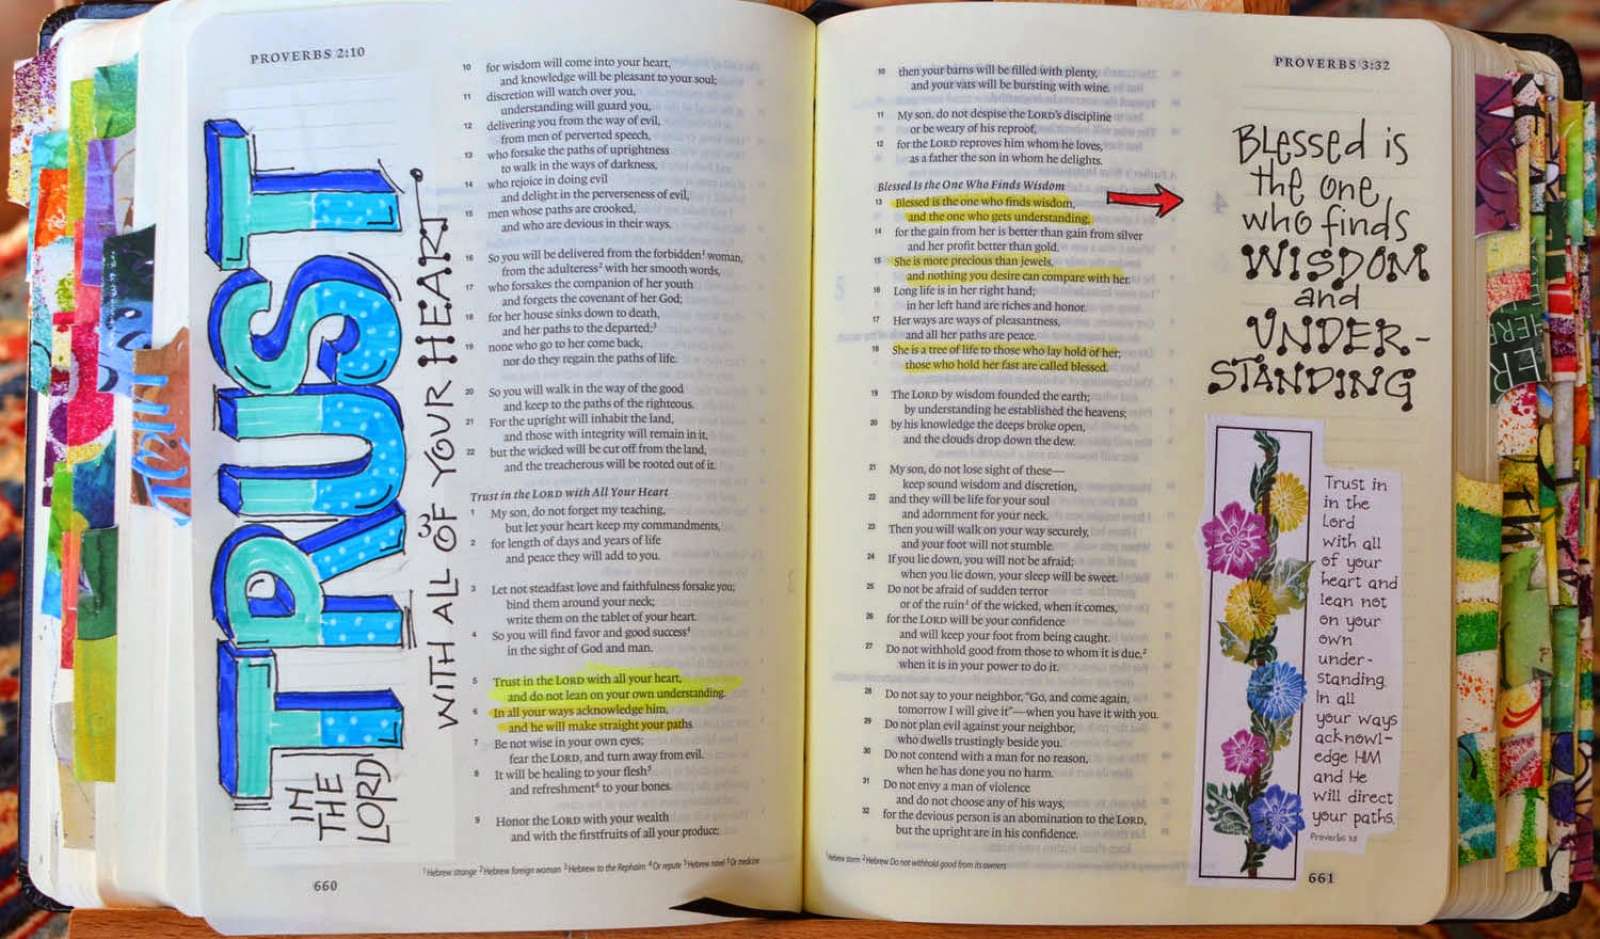 PROVERBS 2:10
TRUST
IN
THE
LORD
WITH ALL OF YOUR HEART
10 for wisdom will come into your heart,
and knowledge will be pleasant to your soul;
11 discretion will watch over you,
understanding will guard you,
12 delivering you from the way of evil,
from men of perverted speech,
13 who forsake the paths of uprightness
to walk in the ways of darkness,
14 who rejoice in doing evil
and delight in the perverseness of evil,
15 men whose paths are crooked,
and who are devious in their ways.
16 So you will be delivered from the forbidden1 woman,
from the adulteress2 with her smooth words,
17 who forsakes the companion of her youth
and forgets the covenant of her God;
18 for her house sinks down to death,
and her paths to the departed;3
19 none who go to her come back,
nor do they regain the paths of life.
20 So you will walk in the way of the good
and keep to the paths of the righteous.
21 For the upright will inhabit the land,
and those with integrity will remain in it,
22 but the wicked will be cut off from the land,
and the treacherous will be rooted out of it.
Trust in the LORD with All Your Heart
3
1 My son, do not forget my teaching,
but let your heart keep my commandments,
2 for length of days and years of life
and peace they will add to you.
3 Let not steadfast love and faithfulness forsake you;
bind them around your neck;
write them on the tablet of your heart.
4 So you will find favor and good success4
in the sight of God and man.
5 Trust in the LORD with all your heart,
and do not lean on your own understanding.
6 In all your ways acknowledge him,
and he will make straight your paths.
7 Be not wise in your own eyes;
fear the LORD, and turn away from evil.
8 It will be healing to your flesh5
and refreshment6 to your bones.
9 Honor the LORD with your wealth
and with the firstfruits of all your produce;
1 Hebrew strange 2 Hebrew foreign woman 3 Hebrew to the Rephaim 4 Or repute 5 Hebrew navel 6 Or medicine
660
PROVERBS 3:32
10 then your barns will be filled with plenty,
and your vats will be bursting with wine.
11 My son, do not despise the LORD's discipline
or be weary of his reproof,
12 for the LORD reproves him whom he loves,
as a father the son in whom he delights.
Blessed Is the One Who Finds Wisdom
13 Blessed is the one who finds wisdom,
and the one who gets understanding,
14 for the gain from her is better than gain from silver
and her profit better than gold.
15 She is more precious than jewels,
and nothing you desire can compare with her.
16 Long life is in her right hand;
in her left hand are riches and honor.
17 Her ways are ways of pleasantness,
and all her paths are peace.
18 She is a tree of life to those who lay hold of her;
those who hold her fast are called blessed.
19 The LORD by wisdom founded the earth;
by understanding he established the heavens;
20 by his knowledge the deeps broke open,
and the clouds drop down the dew.
21 My son, do not lose sight of these—
keep sound wisdom and discretion,
22 and they will be life for your soul
and adornment for your neck.
23 Then you will walk on your way securely,
and your foot will not stumble.
24 If you lie down, you will not be afraid;
when you lie down, your sleep will be sweet.
25 Do not be afraid of sudden terror
or of the ruin1 of the wicked, when it comes,
26 for the LORD will be your confidence
and will keep your foot from being caught.
27 Do not withhold good from those to whom it is due,2
when it is in your power to do it.
28 Do not say to your neighbor, "Go, and come again,
tomorrow I will give it"—when you have it with you.
29 Do not plan evil against your neighbor,
who dwells trustingly beside you.
30 Do not contend with a man for no reason,
when he has done you no harm.
31 Do not envy a man of violence
and do not choose any of his ways,
32 for the devious person is an abomination to the LORD,
but the upright are in his confidence.
1 Hebrew storm 2 Hebrew Do not withhold good from its owners
Blessed is
the one
who finds
WISDOM
and
UNDER-
STANDING
Trust in
in the
Lord
with all
of your
heart and
lean not
on your
own
under-
standing.
In all
your ways
acknowl-
edge HIM
and He
will direct
your paths.
661